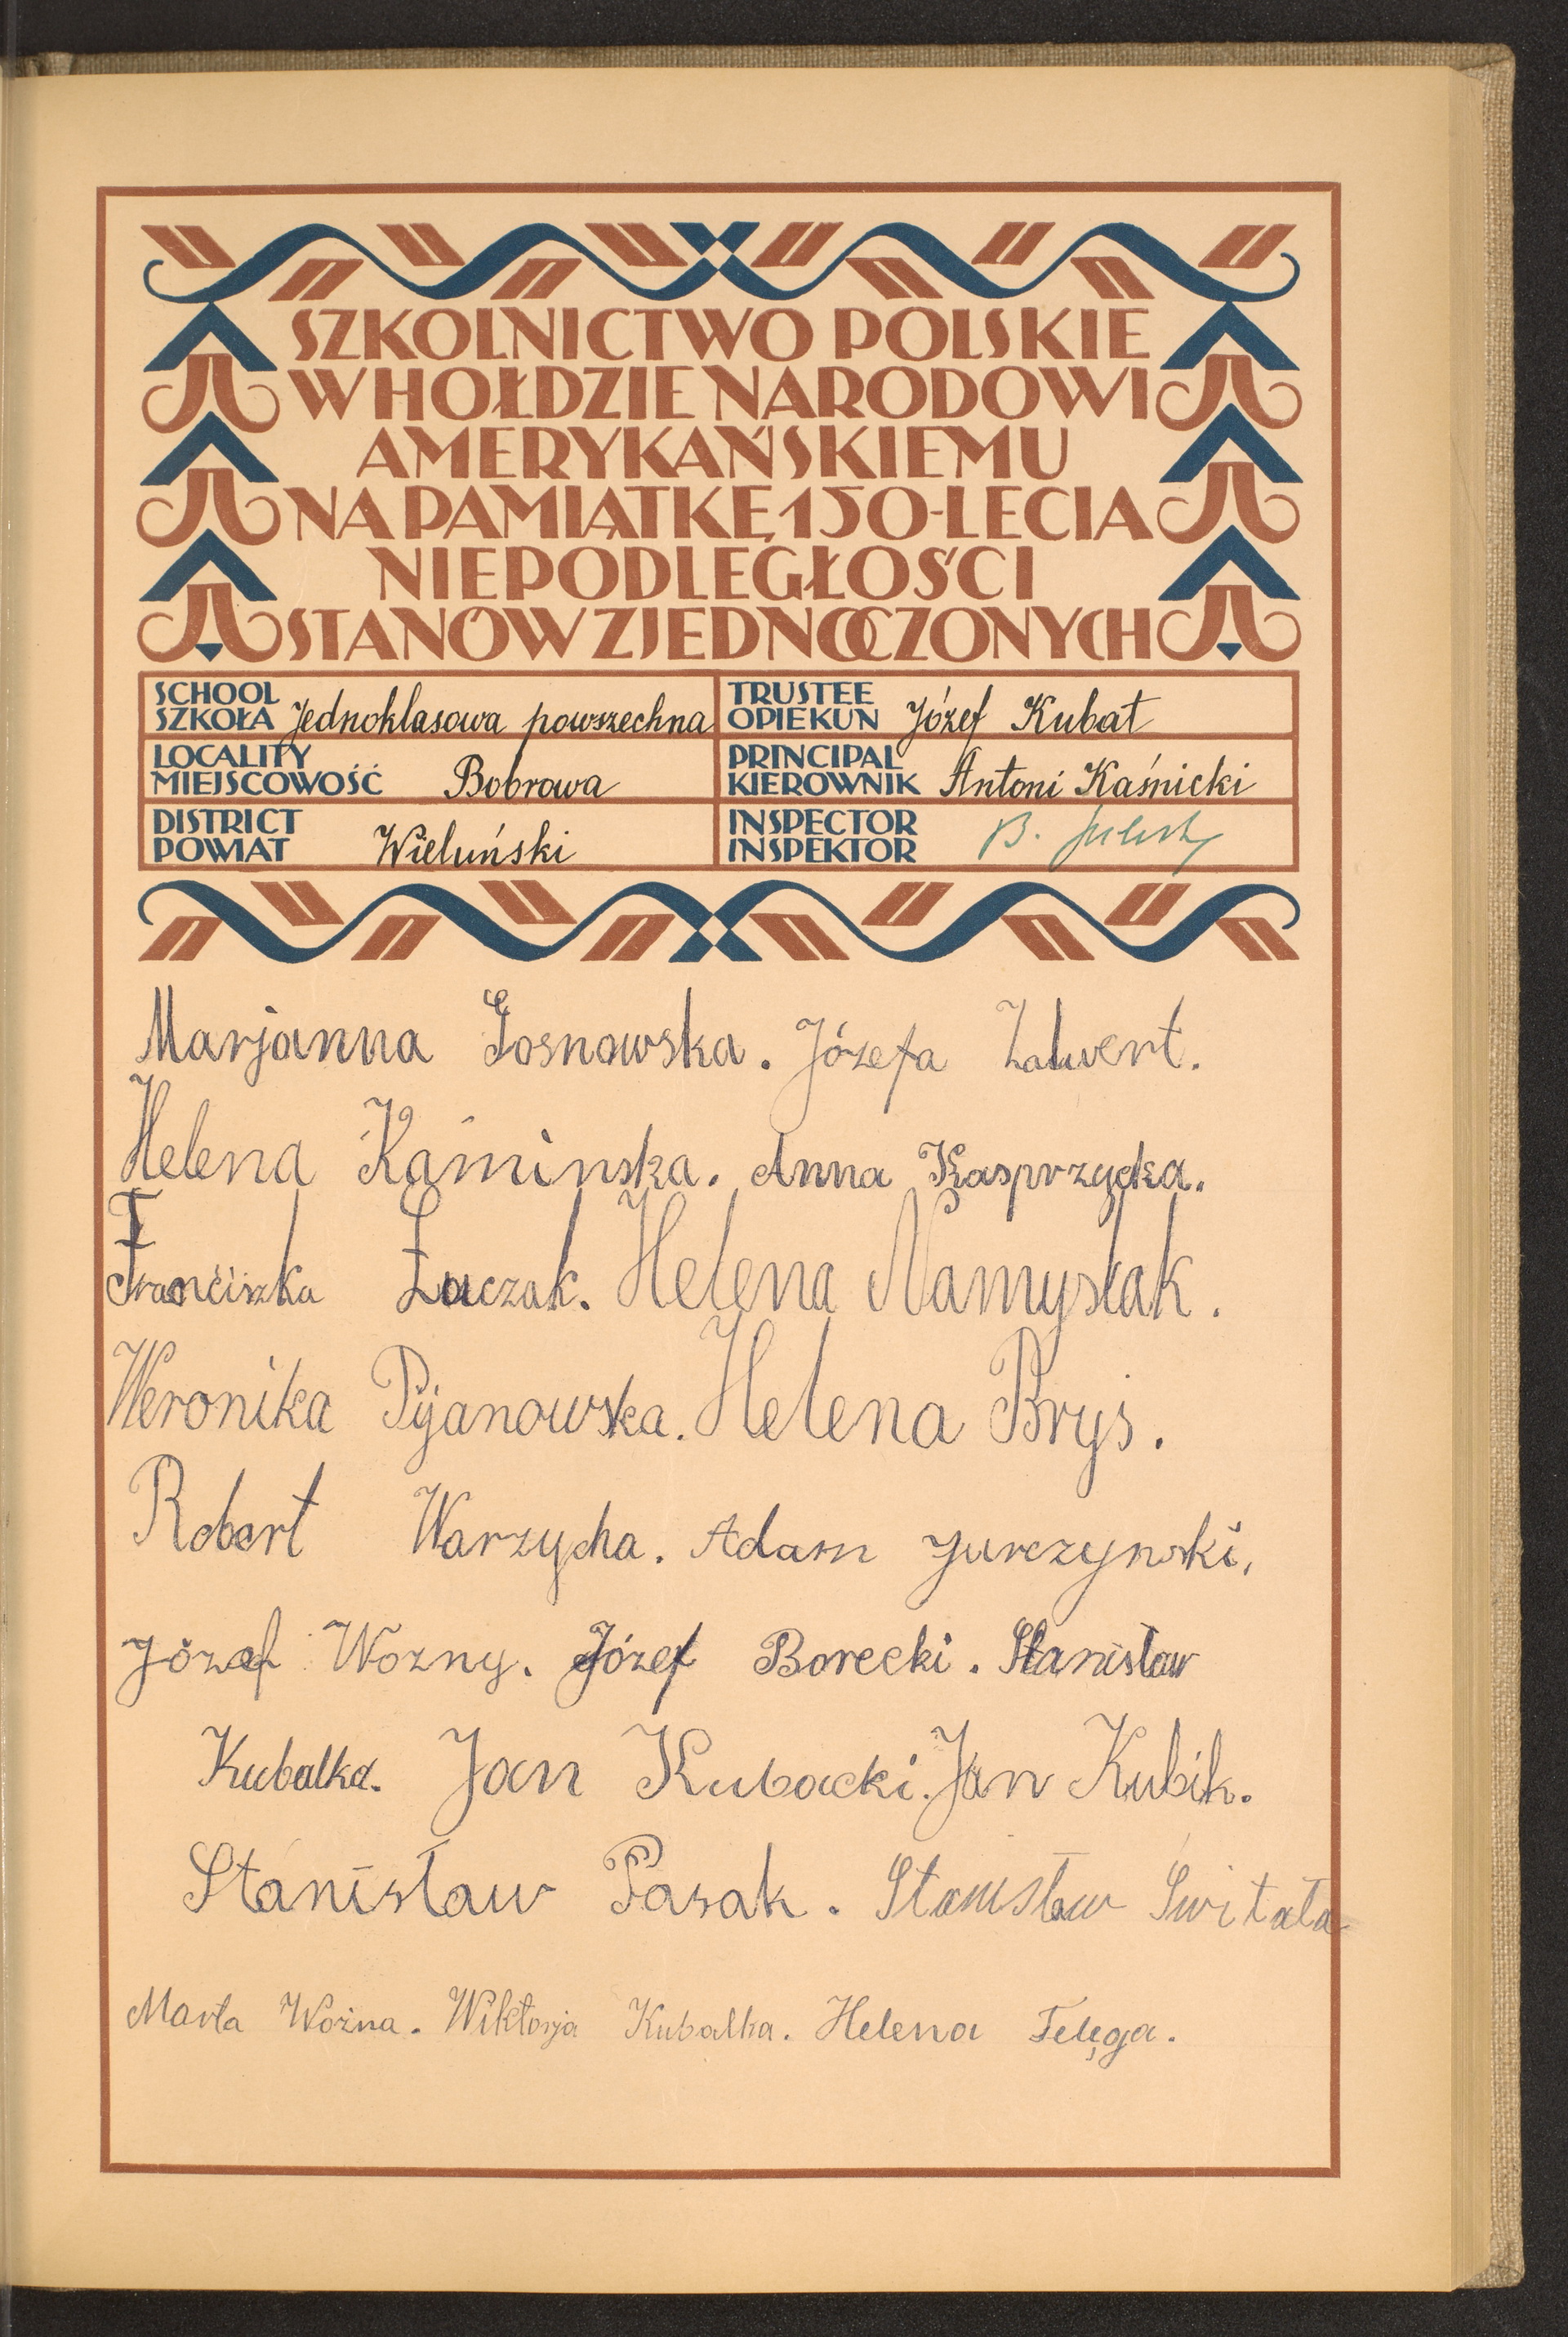 SZKOLNICTWO POLSKIE
W HOŁDZIE NARODOWI
AMERYKAŃSKIEMU
NA PAMIĄTKĘ 150-LECIA
NIEPODLEGŁOŚCI
STANÓW ZJEDNOCZONYCH
SCHOOL
SZKOŁA Jednoklasowa powszechna
TRUSTEE
OPIEKUN Józef Kubat
LOCALITY
MIEJSCOWOŚĆ Bobrowa
PRINCIPAL
KIEROWNIK Antoni Kaśnicki
DISTRICT
POWIAT Wieluński
INSPECTOR
INSPEKTOR B.
Marjanna Sosnowska. Józefa
Helena Kaminska. Anna Kasprzycka.
Franciszka Łuczak. Helena Namysłak.
Weronika Pyanowska. Helena Bryś.
Robert Warzycha. Adam Jurczynski.
Józef Wozny. Józef Borecki. Stanisław
Kubalka. Jan Kubacki. Jan Kubik.
Stanisław Pasak. Stanisław Switała
Marta Woźna. Wiktorja Kubalka. Helena Telęga.